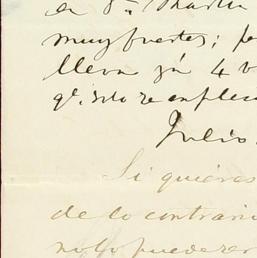 en Sn. Martin
muy fuertes; pe
lleva ya 4 v
qe. solo se emplea
Julio.
Si quieres
de lo contrario
no lo puede ser